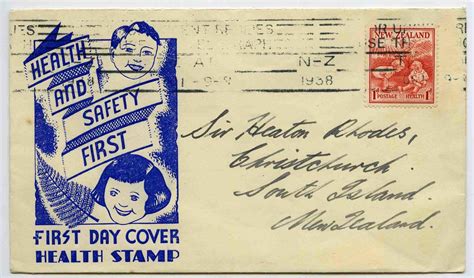 HEALTH
AND
SAFETY
FIRST
FIRST DAY COVER
HEALTH STAMP
N-Z
1938
NEW ZEALAND
POSTAGE HEALTH
1D 1D
Sir Heaton Rhodes,
Christchurch.
South Island.
New Zealand.